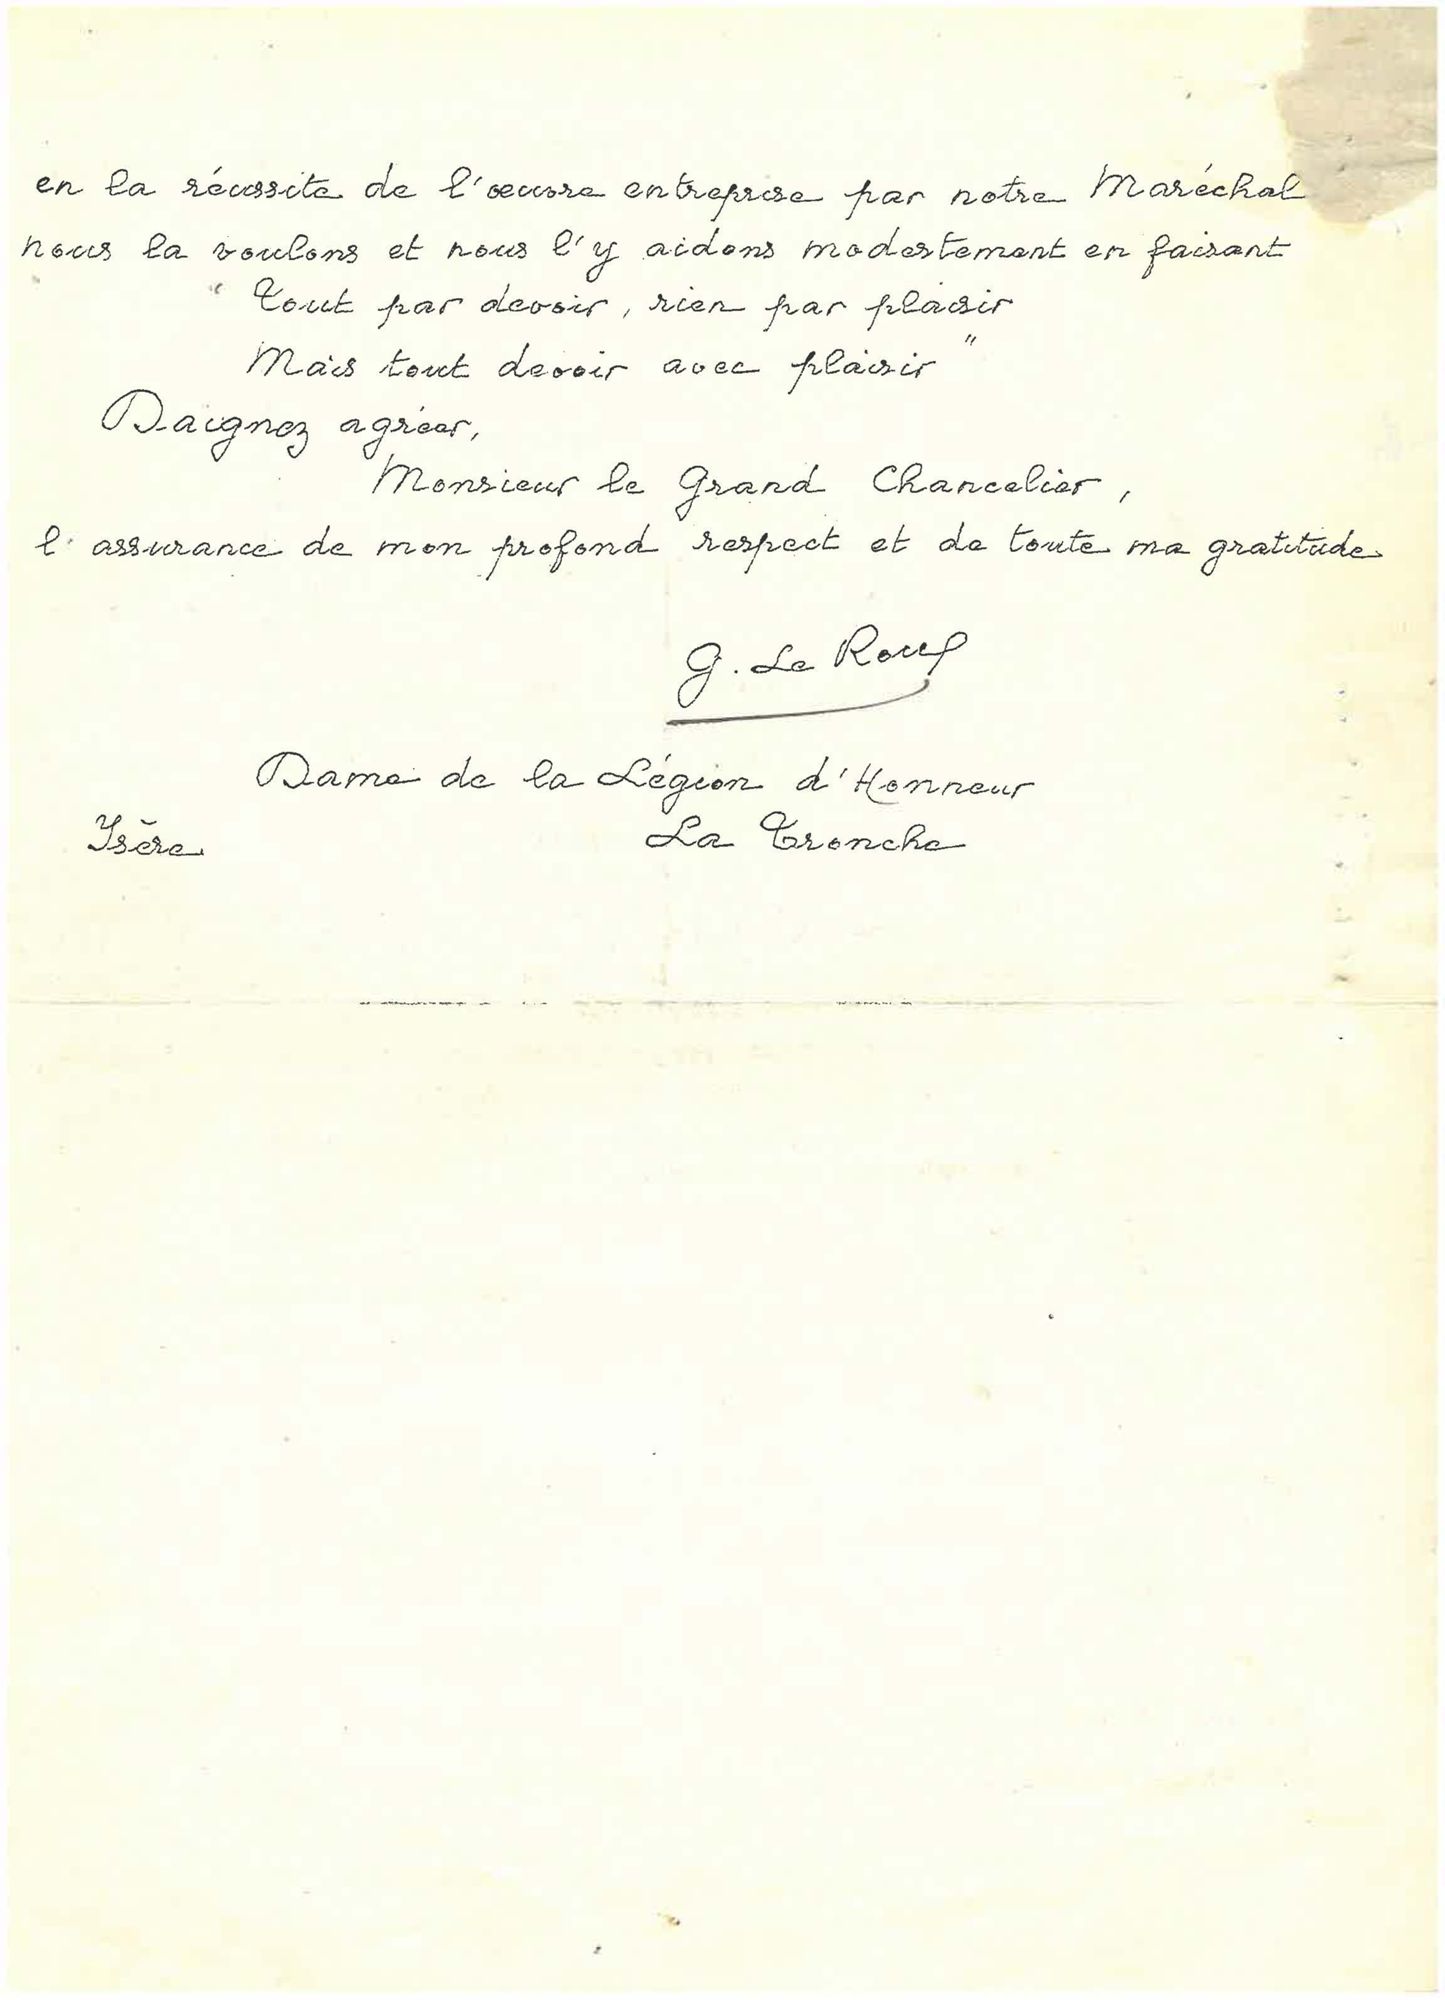 en la réussite de l'œuvre entreprise par notre Maréchal
nous la voulons et nous l'y aidons modestement en faisant
" Tout par devoir, rien par plaisir
Mais tout devoir avec plaisir "
Daignez agréer,
Monsieur le Grand Chancelier,
l'assurance de mon profond respect et de toute ma gratitude
G. Le Roux
Dame de la Légion d'Honneur
Isère La Tronche